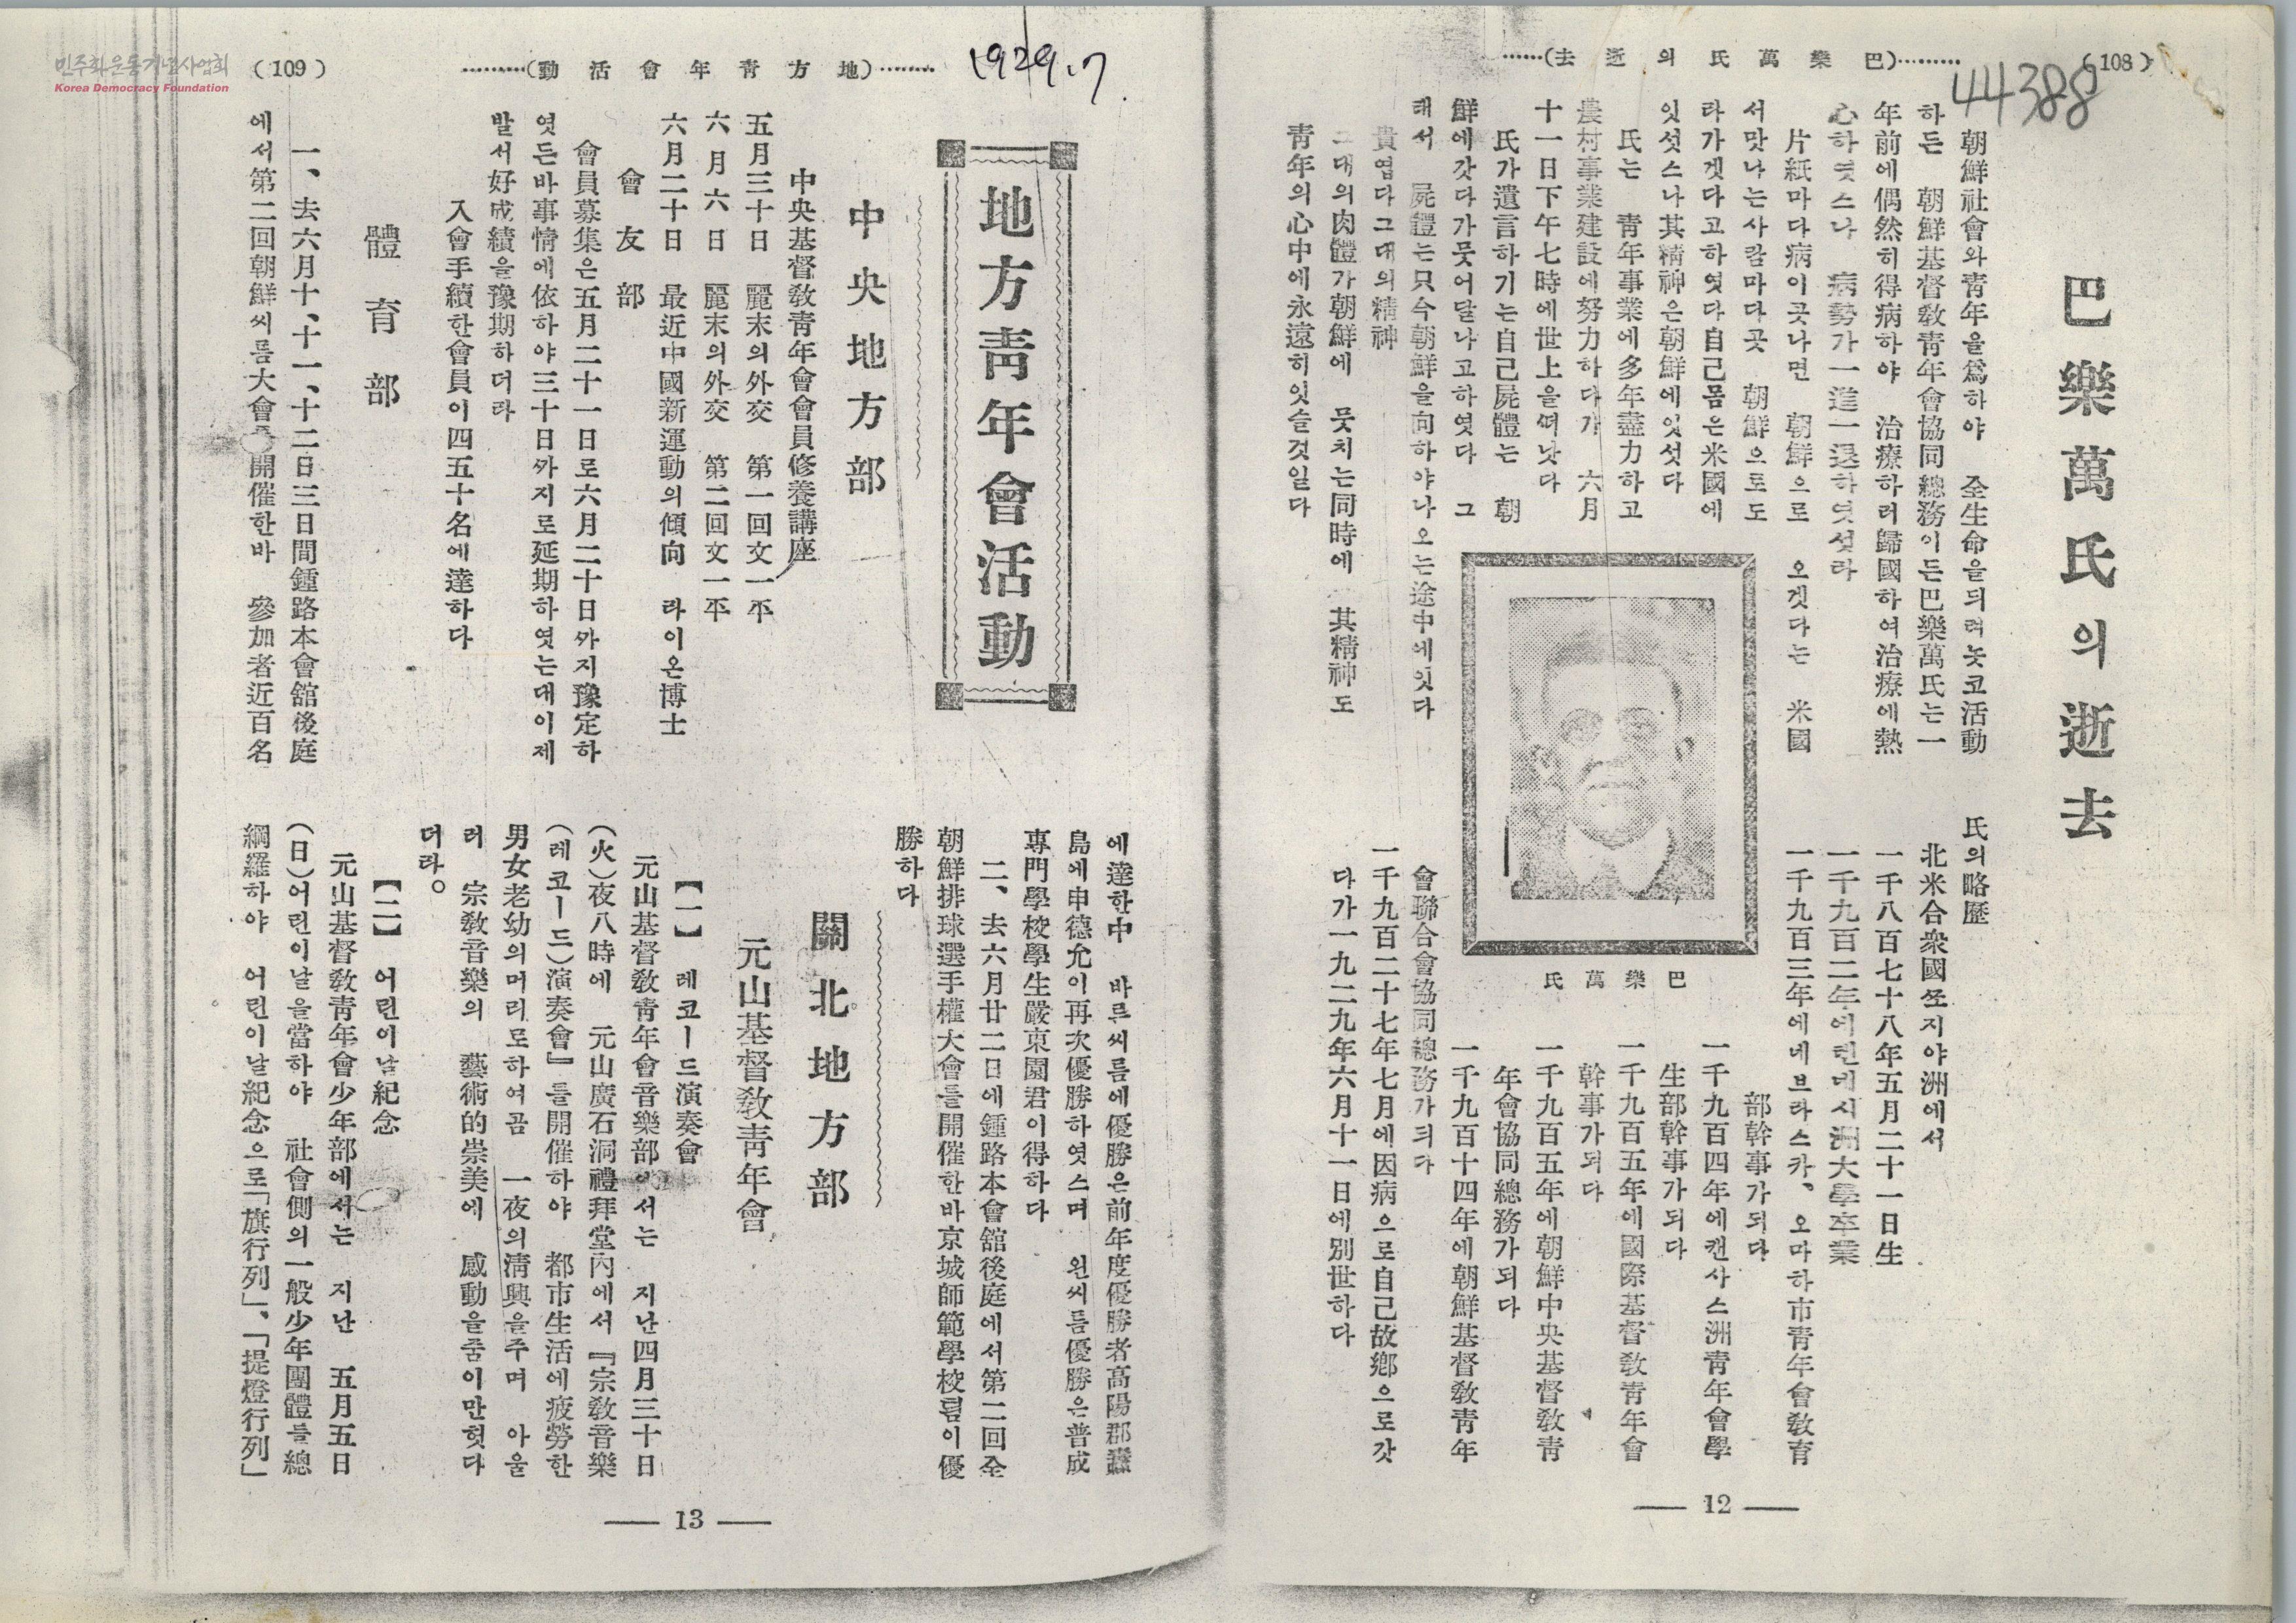 (108)
……(巴樂萬氏의逝去)………
44388
巴樂萬氏의逝去
朝鮮社會와靑年을爲하야 全生命을듸려놋코活動
하든 朝鮮基督敎靑年會協同總務이든巴樂萬氏는一
年前에偶然히得病하야 治療하러歸國하여治療에熱
心하엿스나 病勢가一進一退하엿섯라
片紙마다病이곳나면 朝鮮으로 오겟다는 米國
서맛나는사람마다곳 朝鮮으로도
라가겟다고하엿다自己몸은米國에
잇섯스나其精神은朝鮮에잇섯다
氏는 靑年事業에多年盡力하고
農村事業建設에努力하다가 六月
十一日下午七時에世上을써낫다
氏가遺言하기는自己屍體는 朝
鮮에갓다가뭇어달나고하엿다 그
래서 屍體는只今朝鮮을向하야나오는途中에잇다
貴엽다그대의精神
그대의肉體가朝鮮에 뭇치는同時에 其精神도
靑年의心中에永遠히잇슬것일다
巴樂萬氏
氏의略歷
北米合衆國쪼지야洲에서
一千八百七十八年五月二十一日生
一千九百二年에텐네시洲大學卒業
一千九百三年에네브라스카、오마하市靑年會敎育
部幹事가되다
一千九百四年에캔사스洲靑年會學
生部幹事가되다
一千九百五年에國際基督敎靑年會
幹事가되다
一千九百五年에朝鮮中央基督敎靑
年會協同總務가되다
一千九百十四年에朝鮮基督敎靑年
會聯合會協同總務가되다
一千九百二十七年七月에因病으로自己故鄕으로갓
다가一九二九年六月十一日에別世하다
12
1929.7
………(地方靑年會活動)………
(109)
민주화운동기념사업회
Korea Democracy Foundation
地方靑年會活動
中央地方部
中央基督敎靑年會會員修養講座
五月三十日 麗末의外交 第一回文一平
六月六日 麗末의外交 第二回文一平
六月二十日 最近中國新運動의傾向 라이온博士
會友部
會員募集은五月二十一日로六月二十日까지豫定하
엿든바事情에依하야三十日까지로延期하엿는대이제
발서好成績을豫期하더라
入會手續한會員이四五十名에達하다
體育部
一、去六月十、十一、十二日三日間鍾路本會舘後庭
에서第二回朝鮮씨름大會를開催한바 參加者近百名
에達한中 바른씨름에優勝은前年度優勝者高陽郡纛
島에申德允이再次優勝하엿스며 왼씨름優勝은普成
專門學校學生嚴東園君이得하다
二、去六月廿二日에鍾路本會舘後庭에서第二回全
朝鮮排球選手權大會를開催한바京城師範學校팀이優
勝하다
關北地方部
元山基督敎靑年會
【一】 레코ー드演奏會
元山基督敎靑年會音樂部에서는 지난四月三十日
(火)夜八時에 元山廣石洞禮拜堂內에서『宗敎音樂
(레코ー드)演奏會』를開催하야 都市生活에疲勞한
男女老幼의머리로하여곰 一夜의淸興을주며 아울
러 宗敎音樂의 藝術的崇美에 感動을줌이만헛다
더라。
【二】 어린이날紀念
元山基督敎靑年會少年部에서는 지난 五月五日
(日)어린이날을當하야 社會側의一般少年團體를總
網羅하야 어린이날紀念으로「旗行列」、「提燈行列」
13